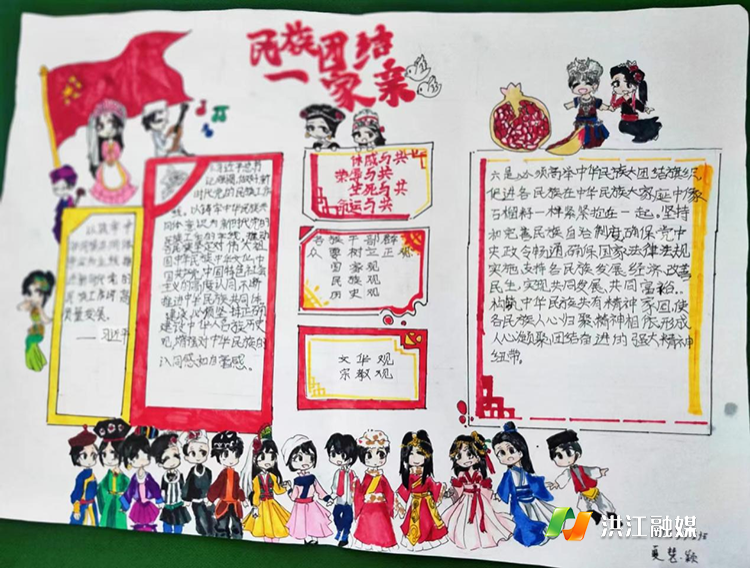 民族团结
一家亲
以铸牢中
华民族共同体
意识为主线推
进新时代党的
民族工作高
质量发展。
——习近平
习近平总书
记强调,做好新
时代党的民族工作
统,以铸牢中华民族共
同体意识为新时代党的
民族工作的主线,推动
各民族坚定对伟大祖
国中华民族中华文化中
国共产党中国特色社会
主义的高度认同不断
推进中华民族共同体
建设,必须坚持正确的
中华民族历史
观,增强对中华民族的
认同感和自豪感。
休戚与共
荣辱与共
生死与共
命运与共
各族干部群
众要树立正确
国家观
民族观
历史观
文华观
宗教观
六是必须高举中华民族大团结旗帜,
促进各民族在中华民族大家庭中像
石榴籽一样紧紧抱在一起。坚持
和完善民族区域自治制度确保党中
央政令畅通,确保国家法律法规
实施,支持各民族发展经济、改善
民生,实现共同发展、共同富裕。
构筑中华民族共有精神家园,使
各民族人心归聚,精神相依,形成
人心凝聚,团结奋进的强大精神
纽带。
洪江融媒
夏慧颖